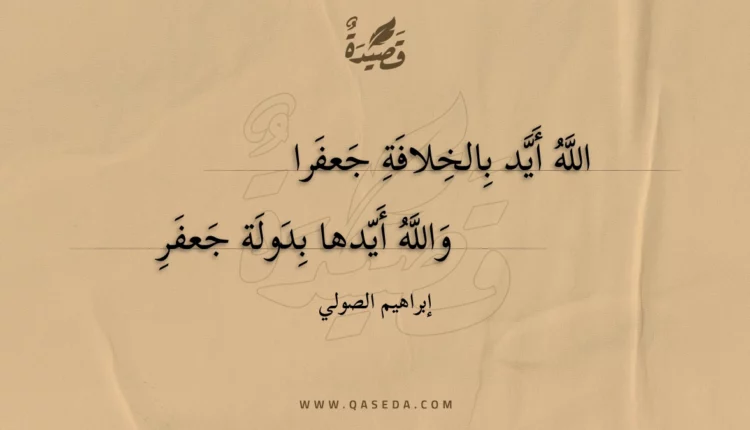 قَصِيْدَةٌ
اللَّهُ أَيَّد بِالخِلافَةِ جَعفَرا
وَاللَّهُ أَيّدها بِدَولَة جَعفَرِ
إبراهيم الصولي
WWW.QASEDA.COM